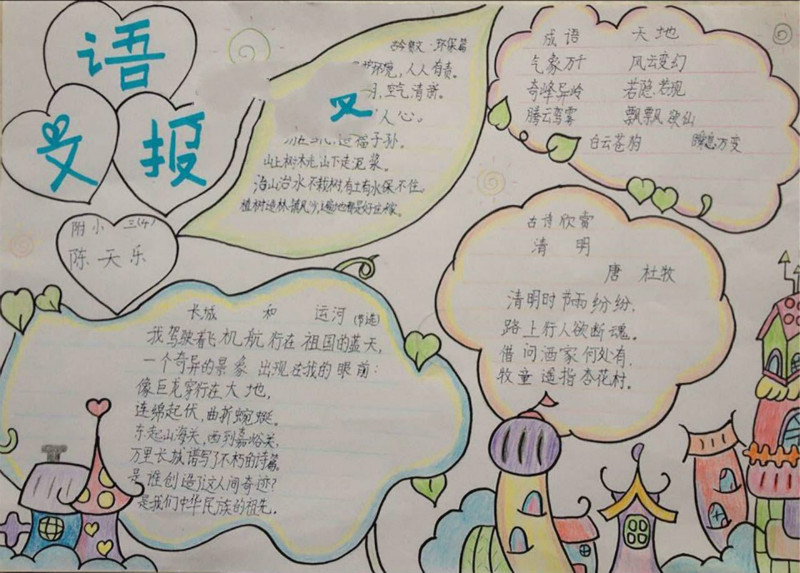 语
文报
附小 三(4)
陈天乐
环保篇
环境，人人有责。
空气清
人心。
子孙。
山上树木光，山下走泥浆。
治山治水不栽树，有土有水保不住。
成语 天地
气象万千 风云变幻
奇峰异岭 若隐若现
腾云驾雾 飘飘欲仙
白云苍狗 瞬息万变
古诗欣赏
清明
唐 杜牧
清明时节雨纷纷，
路上行人欲断魂。
借问酒家何处有，
牧童遥指杏花村。
长城 和 运河(节选)
我驾驶着飞机航行在祖国的蓝天，
一个奇异的景象出现在我的眼前：
像巨龙穿行在大地，
连绵起伏，曲折蜿蜒。
东起山海关，西到嘉峪关，
万里长城谱写了不朽的诗篇。
是谁创造了这人间奇迹？
是我们中华民族的祖先。